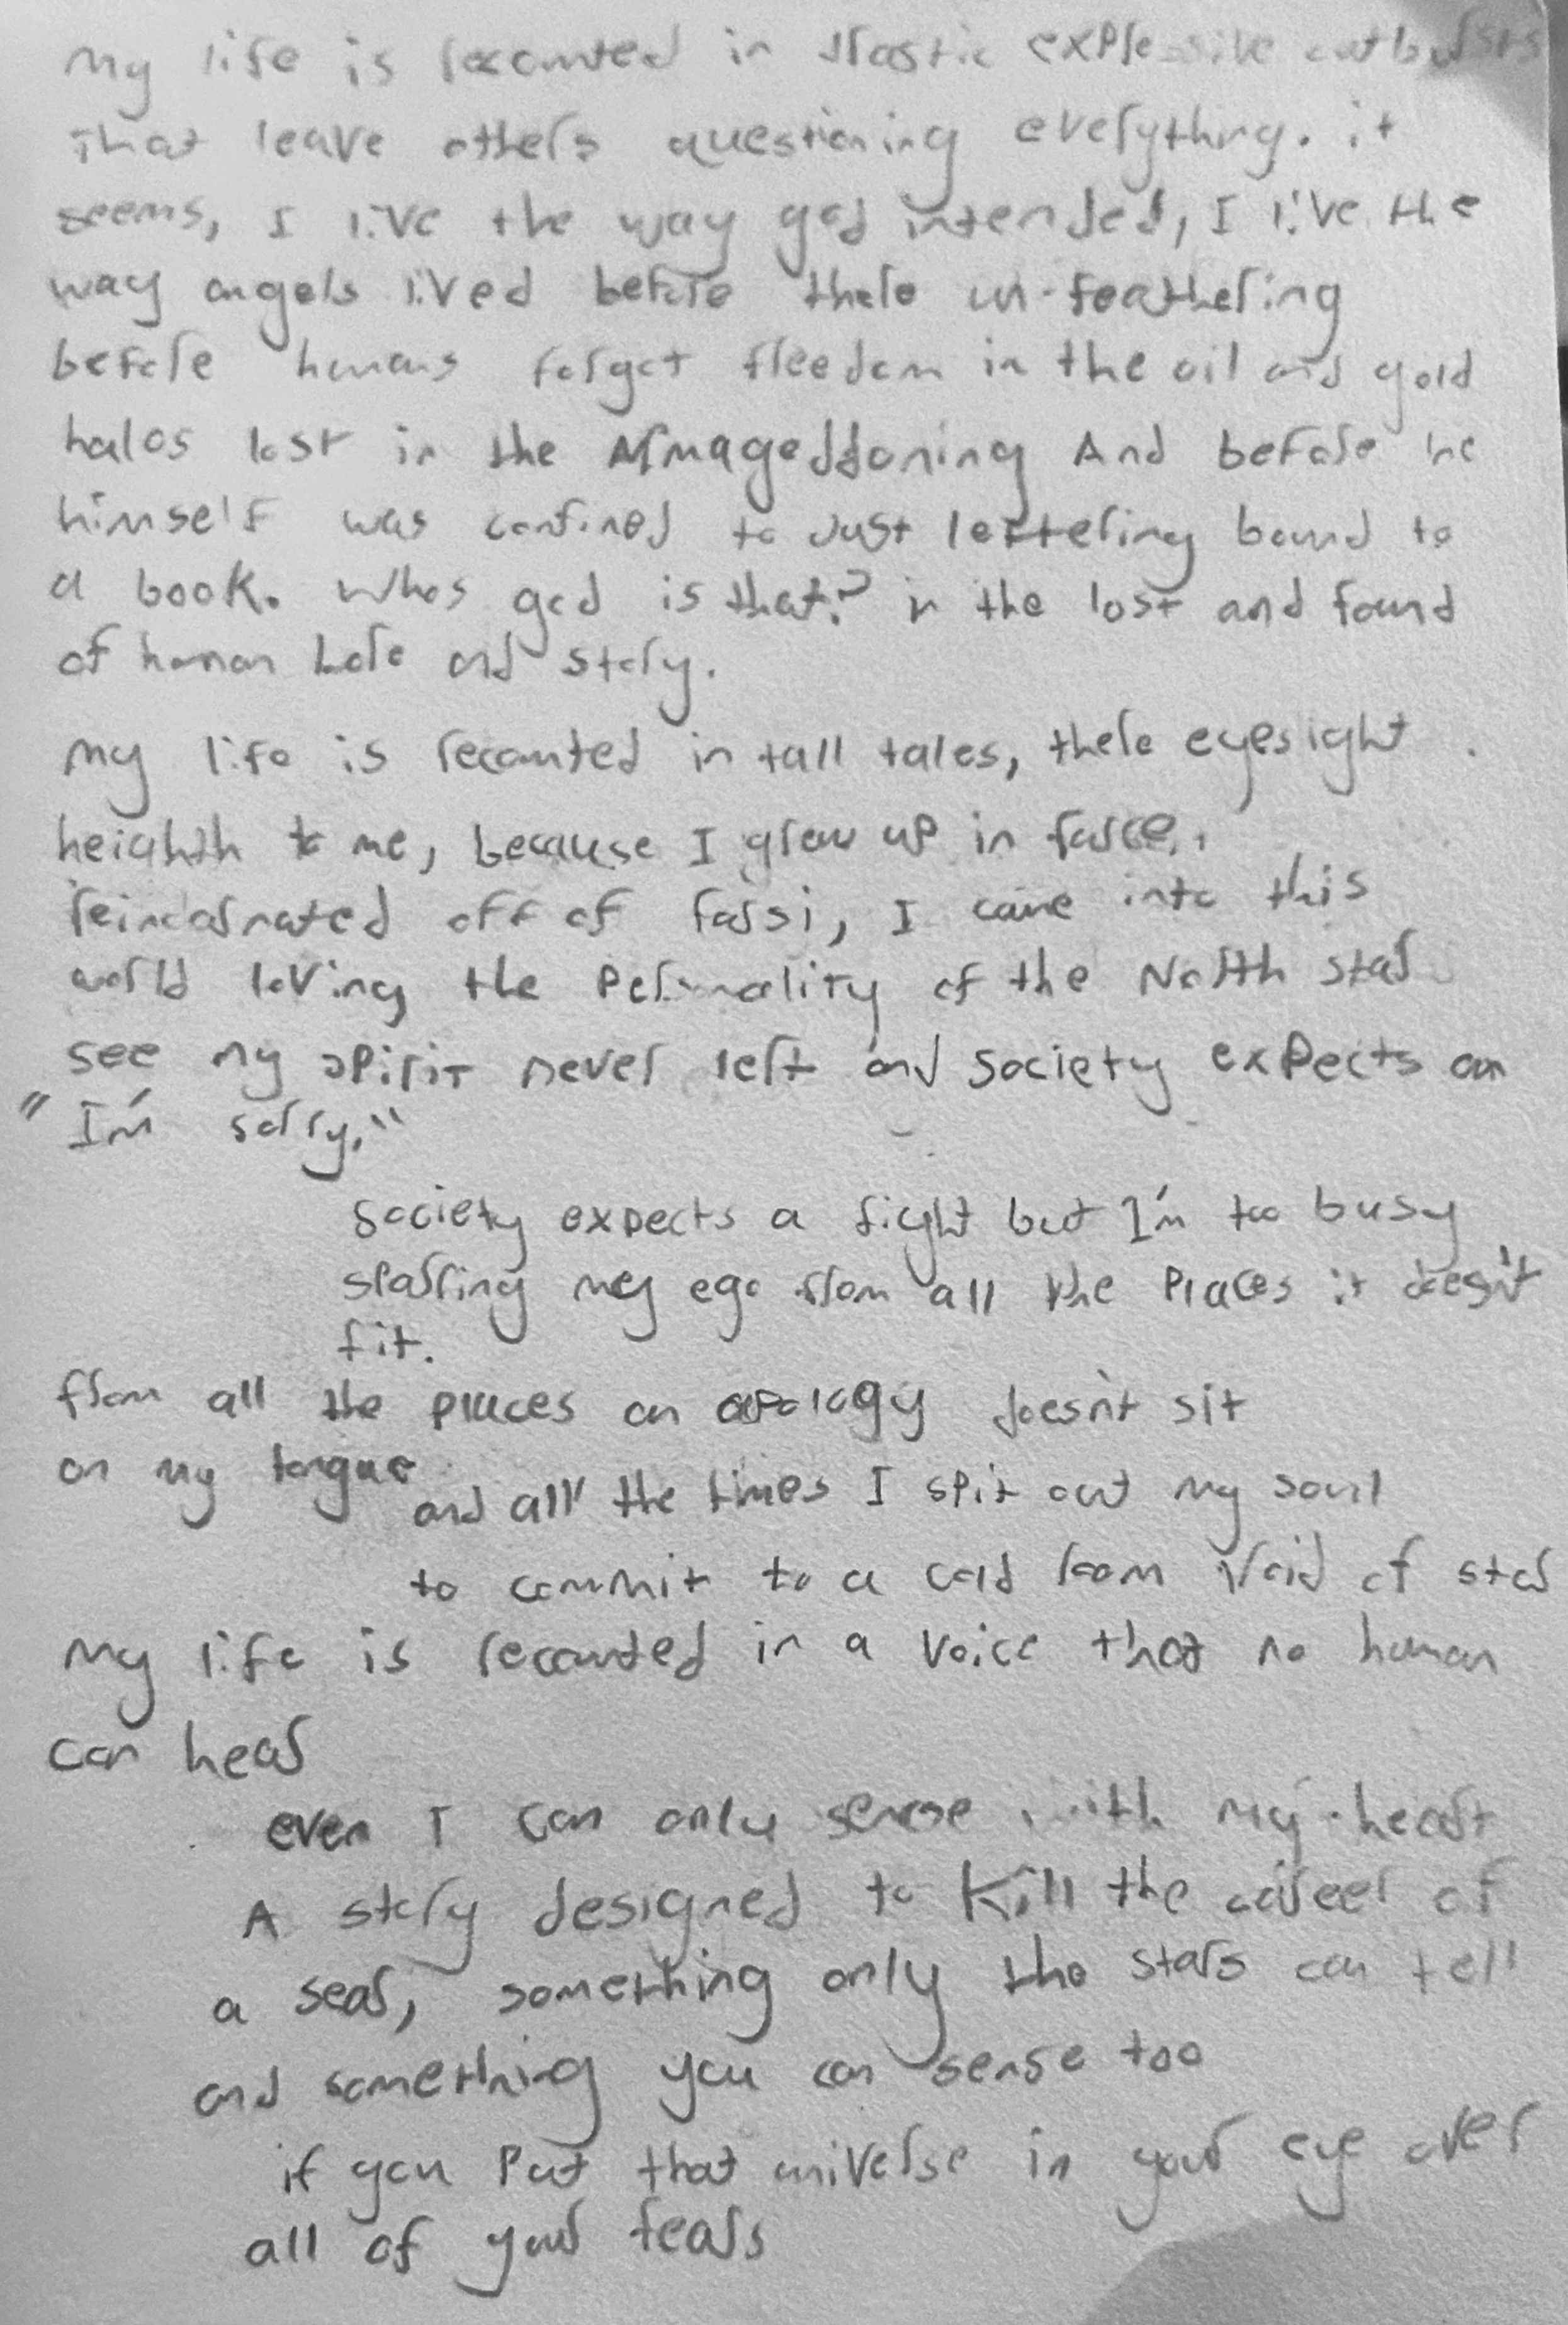 My life is recounted in drastic expressive outbursts
That leave others questioning everything. it
seems, I live the way god intended, I live the
way angels lived before there un-feathering
before humans forgot freedom in the oil and gold
halos lost in the Armageddoning And before he
himself was confined to Just lettering bound to
a book. Whos god is that? in the lost and found
of human Lore and story.
My life is recounted in tall tales, there eyesight
heighth to me, because I grew up in farce,
reincarnated off of farsi, I came into this
world loving the Personality of the North star
see my spirit never left and society expects an
"I'm sorry."
Society expects a fight but I'm too busy
sparring my ego from all the Places it doesn't
fit.
from all the places an apology doesn't sit
on my tongue
and all the times I spit out my soul
to commit to a cold room void of star
My life is recounted in a voice that no human
can hear
even I can only sense with my heart
A story designed to Kill the career of
a sear, something only the stars can tell
and something you can sense too
if you Put that universe in your eye over
all of your fears